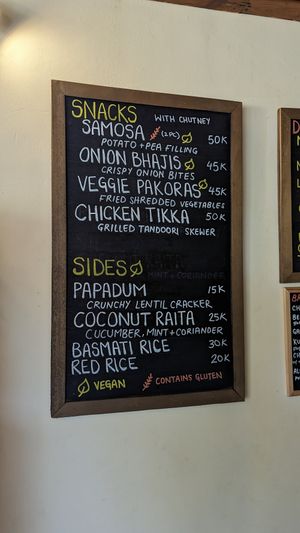 SNACKS WITH CHUTNEY
SAMOSA (2PC) 50K
POTATO + PEA FILLING
ONION BHAJIS 45K
CRISPY ONION BITES
VEGGIE PAKORAS 45K
FRIED SHREDDED VEGETABLES
CHICKEN TIKKA 50K
GRILLED TANDOORI SKEWER
SIDES
MINT + CORIANDER
PAPADUM 15K
CRUNCHY LENTIL CRACKER
COCONUT RAITA 25K
CUCUMBER, MINT + CORIANDER
BASMATI RICE 30K
RED RICE 20K
VEGAN CONTAINS GLUTEN